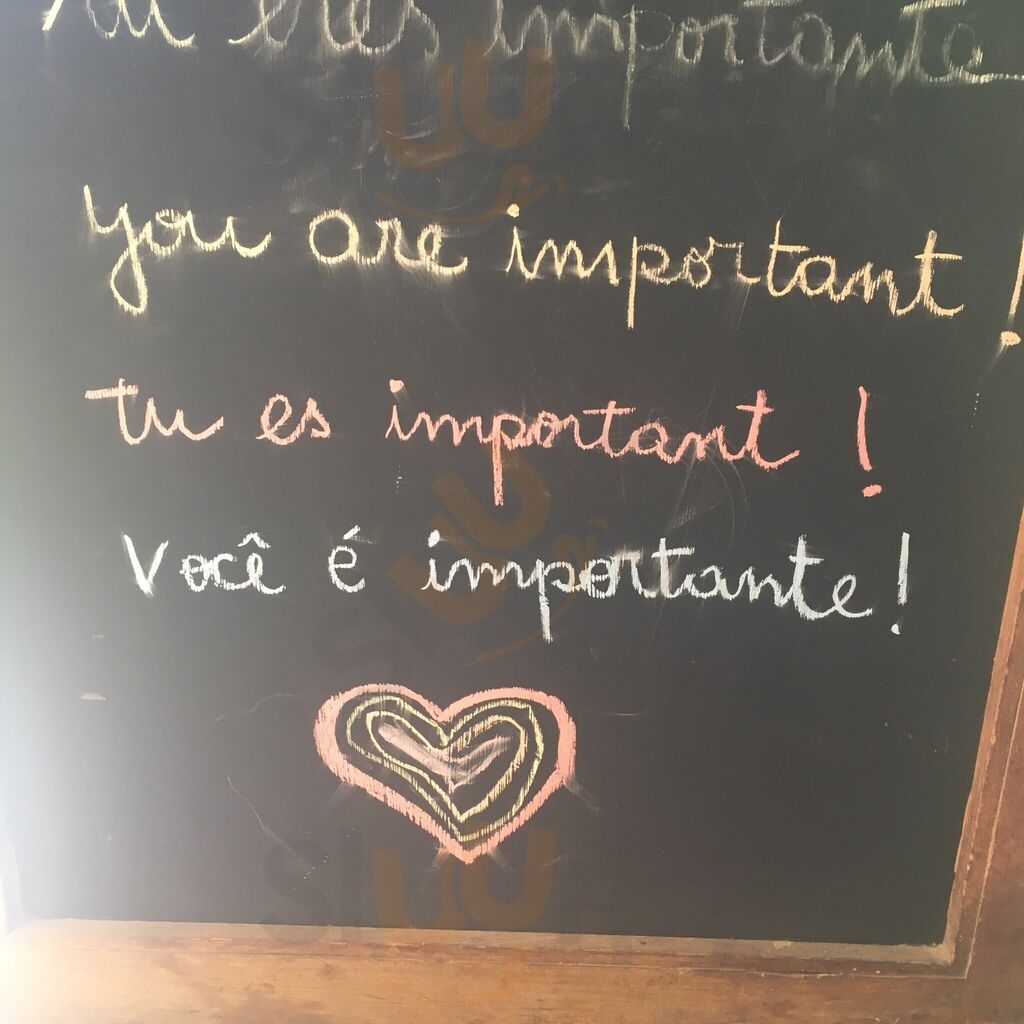 tu eres importante
you are important!
tu es important!
Você é importante!